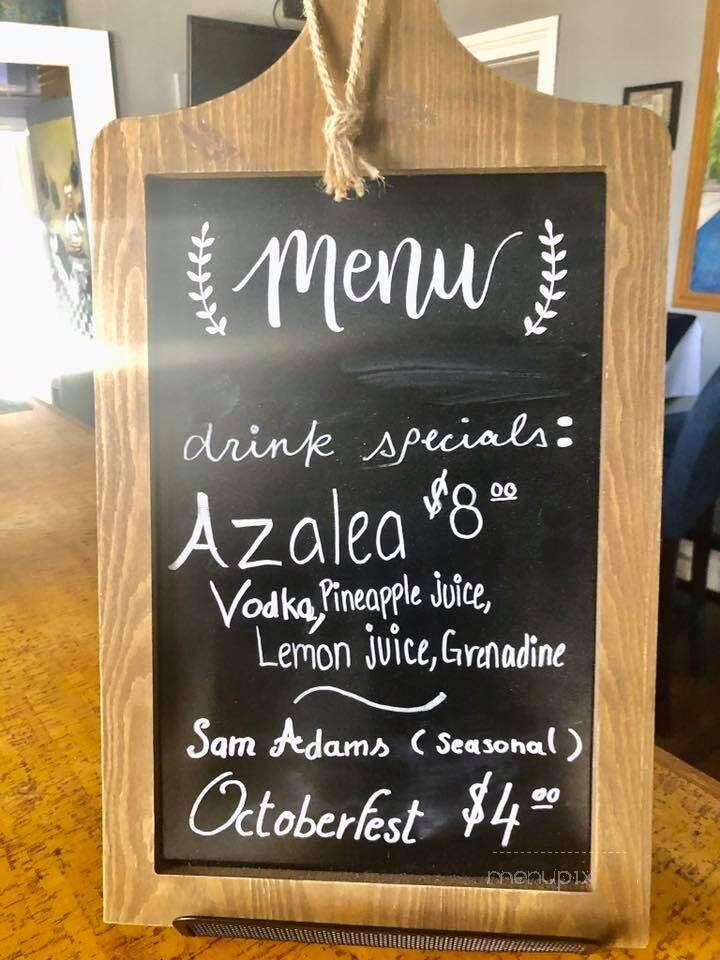 Menu
drink specials:
Azalea $8.00
Vodka, Pineapple juice,
Lemon juice, Grenadine
Sam Adams (Seasonal)
Octoberfest $4.00
menupix